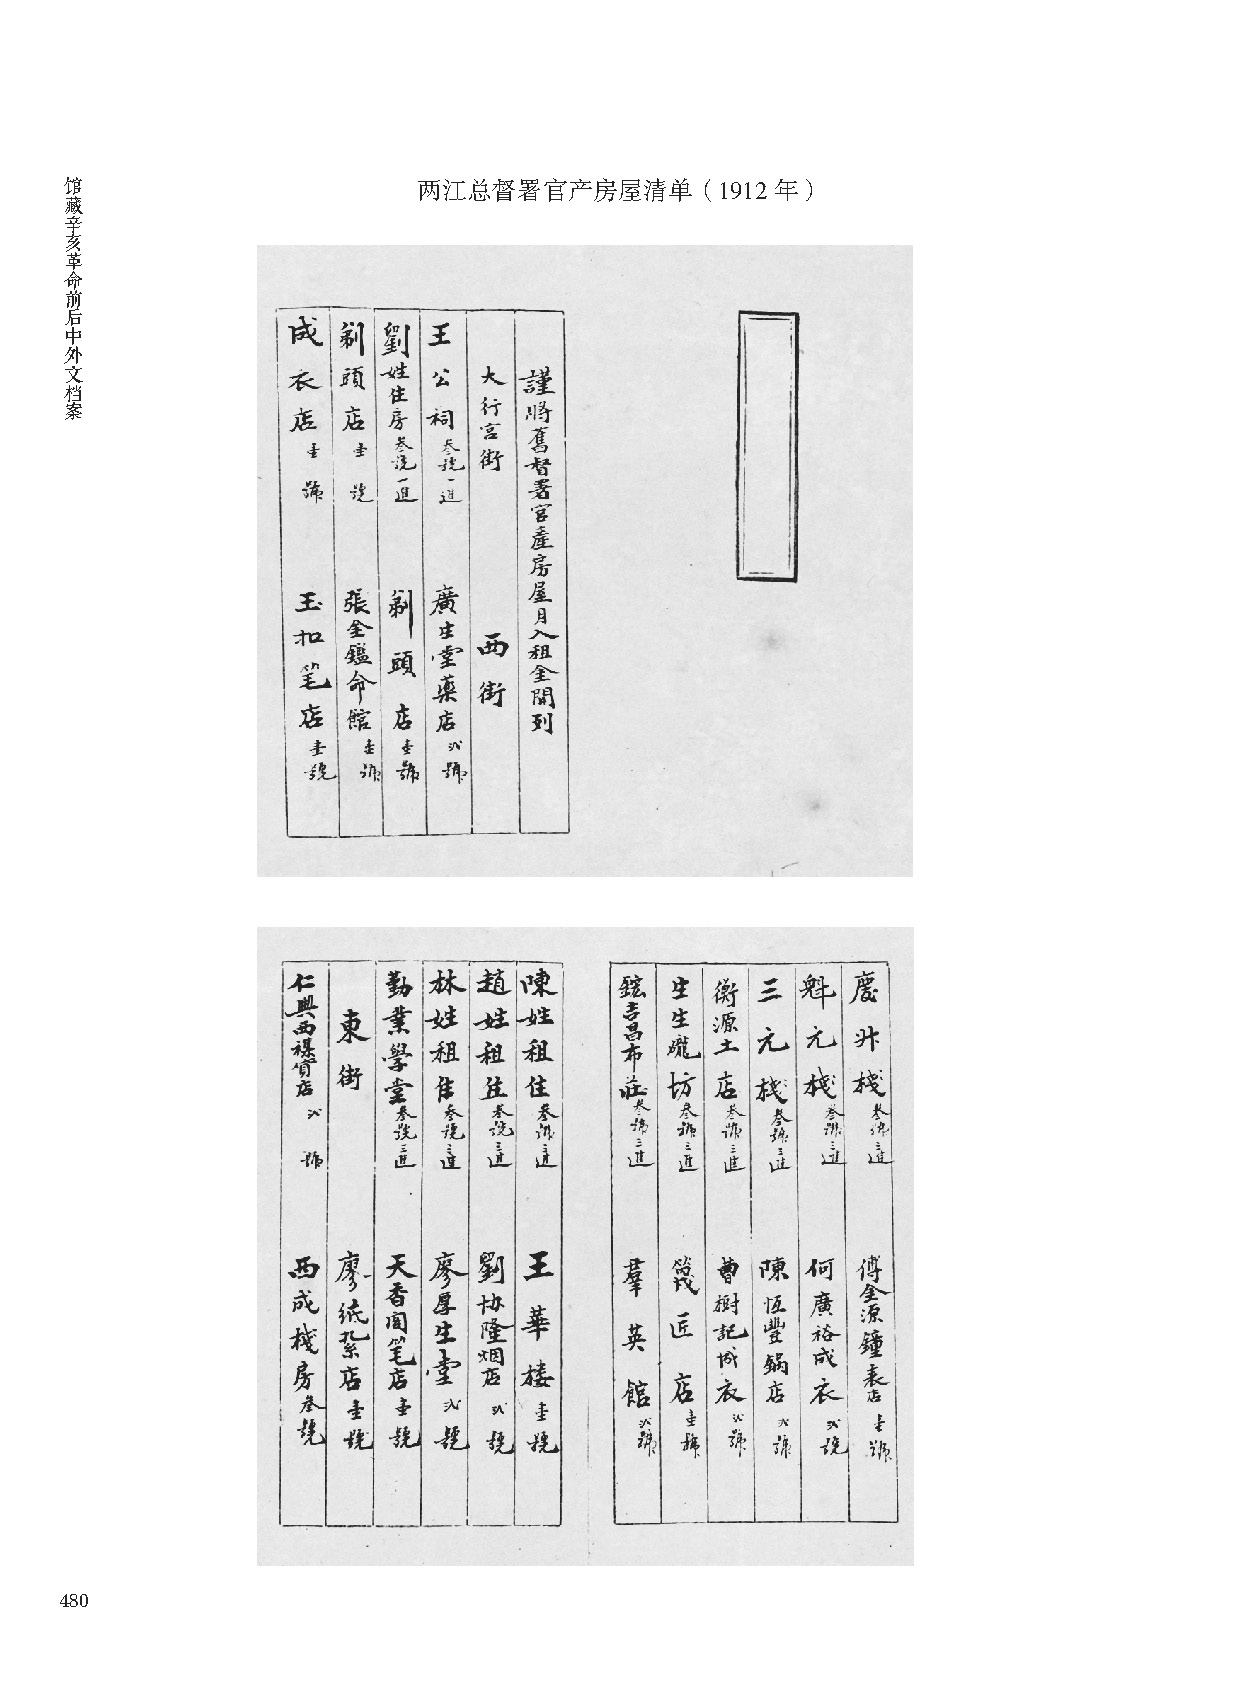 馆藏辛亥革命前后中外文档案
两江总督署官产房屋清单（1912 年）
謹將舊督署官產房屋月入租金開列
大行宫街 西街
王公祠 叁號一進 廣生堂藥店 弍號
劉姓住房 叁號一進 剃頭店 壹號
剃頭店 壹號 張金鑑命館 壹號
成衣店 壹號 玉和笔店 壹號
慶升棧 叁號三進 傅金源鐘表店 壹號
魁元棧 叁號三進 何廣裕成衣 弍號
三元棧 叁號三進 陳恒豐鍋店 弍號
衡源土店 叁號三進 曹樹記成衣 弍號
生生礲坊 叁號三進 篾匠店 壹號
鋐吉昌布莊 叁號三進 羣英館 弍號
陳姓租住 叁號三進 王華楼 壹號
趙姓租住 叁號三進 劉協隆烟店 弍號
林姓租住 叁號三進 廖厚生堂 弍號
勤業學堂 叁號三進 天香阁笔店 壹號
東街 廖紙扎店 壹號
仁興西禖貨店 弍號 西成棧房 叁號
480